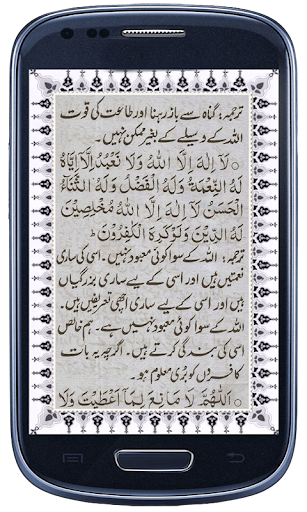 ترجمہ: گناہ سے باز رہنا اور طاعت کی قوت
اللہ کے وسیلے کے بغیر ممکن نہیں۔
○ لَآ اِلٰهَ اِلَّا اللّٰهُ وَلَا نَعْبُدُ اِلَّآ اِيَّاهُ
لَهُ النِّعْمَةُ وَلَهُ الْفَضْلُ وَلَهُ الثَّنَآءُ
الْحَسَنُ لَآ اِلٰهَ اِلَّا اللّٰهُ مُخْلِصِيْنَ
لَهُ الدِّيْنَ وَلَوْكَرِهَ الْكٰفِرُوْنَ ○
ترجمہ: اللہ کے سوا کوئی معبود نہیں۔ اسی کی ساری
نعمتیں ہیں اور اسی کے لیے ساری بزرگیاں
ہیں اور اسی کے لیے ساری اچھی تعریفیں ہیں۔
اللہ کے سوا کوئی معبود نہیں ہے۔ ہم خالص
اسی کی بندگی کرتے ہیں۔ اگرچہ یہ بات
کافروں کو بُری معلوم ہو۔
○ اَللّٰهُمَّ لَا مَانِعَ لِمَآ اَعْطَيْتَ وَلَا